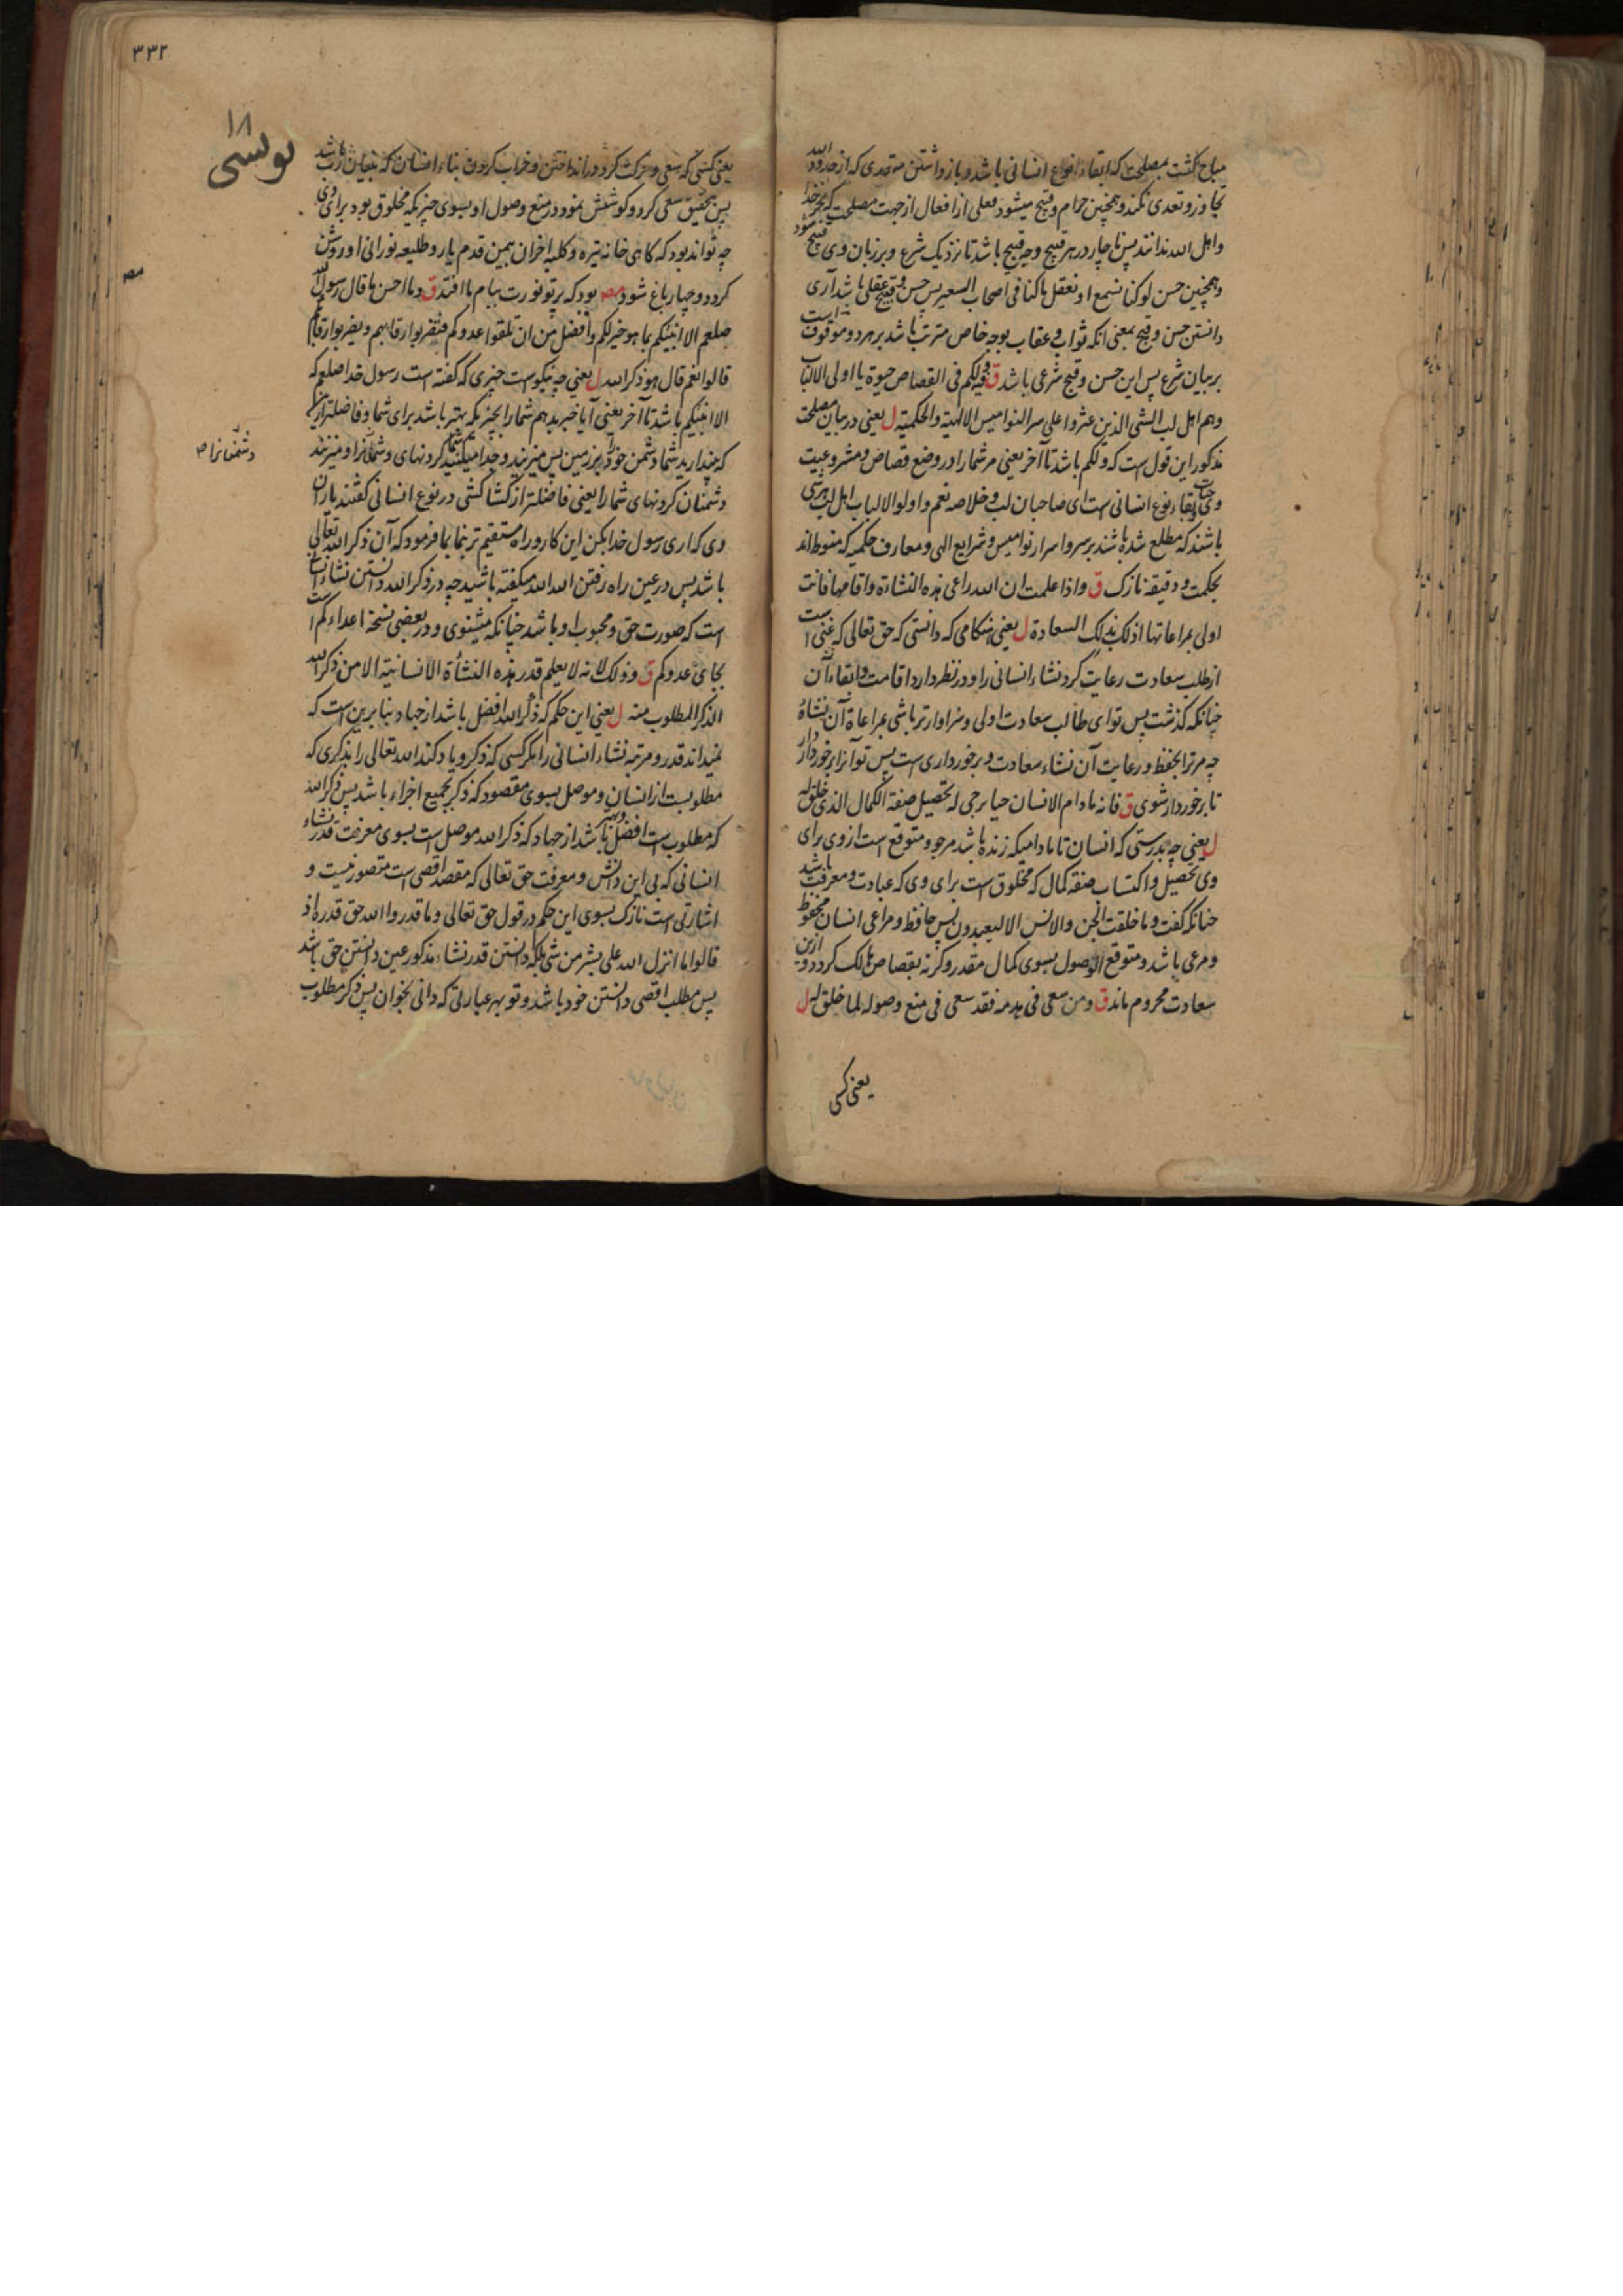 مباح گشت بمصلحت که ابقاء انواع انسانی باشد و باز داشتن متعدی که از حدود الله
تجاوز و تعدی نکند و همچنین حرام و قبیح میشود فعلی از افعال از جهت مصلحت که بجز خدا
و اهل الله ندانند پس ناچار در هر قبیح وجه قبیح باشد تا نزدیک شرع و بر زبان وی قبیح شود
و همچنین حسن لو کنا نسمع او نعقل ما کنا فی اصحاب السعیر پس حسن و قبیح عقلی باشد آری
دانستن حسن و قبح بمعنی انکه ثواب و عقاب بوجه خاص مترتب باشد بر هر دو موقوف است
بر بیان شرع پس این حسن و قبح شرعی باشد ق ولکم فی القصاص حیوة یا اولی الالباب
وهم اهل لب الشی الذین عثروا علی سر النوامیس الالهیة والحکمیة ل یعنی در بیان مصلحت
مذکور این قول است که ولکم باشد تا آخر یعنی مر شما را در وضع قصاص و مشروعیت
وی ابقاء نوع انسانی است ای صاحبان لب و خلاصه نعم و اولو الالباب اهل لب هر شی
باشند که مطلع شده باشند بر سر و اسرار نوامیس و شرایع الهی و معارف حکمیه که منوط اند
بحکمت و دقیقه نازک ق و اذا علمت ان الله راعی هذه النشاءة و اقامها فانت
اولی بمراعاتها اذ لک بذلک السعادة ل یعنی هنگامی که دانستی که حق تعالی که غنی است
از طلب سعادت رعایت کرد نشاء انسانی را و در نظر دارد اقامت و ابقاء آن
چنانکه گذشت پس تو ای طالب سعادت اولی و سزاوارتر باشی بمراعاة آن نشاة
چه مر ترا بحفظ و رعایت آن نشاء سعادت و برخورداری است پس تو آنرا برخوردار دار
تا برخوردار شوی ق فانه ما دام الانسان حیا یرجی له تحصیل صفة الکمال الذی خلق له
ل یعنی چه بدرستی که انسان تا مادامیکه زنده باشد مرجو و متوقع است از وی برای
وی تحصیل و اکتساب صفة کمال که مخلوق است برای وی که عبادت و معرفت باشد
چنانکه گفت و ما خلقت الجن والانس الا لیعبدون پس حافظ و مراعی انسان محفوظ
و مرعی باشد و متوقع الوصول بسوی کمال مقدر وگرنه بقصاص هالک گردد و ازین
سعادت محروم ماند ق و من سعی فی هدمه فقد سعی فی منع وصوله لما خلق له ل
یعنی کسی
۳۳۲
۱۸
یونسی
یعنی کسی که سعی و حرکت کرد در انداختن و خراب کردن بناء انسان که بنیان رب باشد
پس بتحقیق سعی کرد و کوشش نمود در منع وصول او بسوی چیزیکه مخلوق بود برای وی
چه تواند بود که گاهی خانه تیره و کلبه احزان بیمن قدم یار و طلیعه نورانی او روشن
گردد و چهار باغ شود مصر بود که پرتو نورت ببام ما افتد ق و ما احسن ما قال رسول الله
صلعم الا انبئکم بما هو خیر لکم و افضل من ان تلقوا عدوکم فتضربوا رقابهم و یضربوا رقابکم
قالوا نعم قال هو ذکر الله ل یعنی چه نیکوست چیزی که گفته است رسول خدا صلعم که
الا انبئکم باشد تا آخر یعنی آیا خبر بدهم شما را بچیزیکه بهتر باشد برای شما و فاضلتر از
دشمنانرا
وی که اری رسول خدا بکن این کار و راه مستقیم تر بنما بما فرمود که آن ذکر الله تعالی
باشد پس در عین راه رفتن الله الله میگفته باشید چه در ذکر الله دانستن نشاء
است که صورت حق و محبوب او باشد چنانکه میشنوی و در بعضی نسخة اعداءکم است
بجای عدوکم ق و ذلک لانه لا یعلم قدر هذه النشأة الانسانیة الا من ذکر الله
الذکر المطلوب منه ل یعنی این حکم که ذکر الله افضل باشد از جهاد بنا برین است که
نمیداند قدر و مرتبه نشاء انسانی را مگر کسی که ذکر و یاد کند الله تعالی را بذکری که
مطلوبست از انسان و موصل بسوی مقصود که ذکر بجمیع اجزاء باشد پس ذکر الله
که مطلوب است افضل باشد از جهاد که ذکر الله موصل است بسوی معرفت قدر نشاء
انسانی که بی این دانش و معرفت حق تعالی که مقصد اقصی است متصور نیست و
اشارتی است نازک بسوی این حکم در قول حق تعالی و ما قدروا الله حق قدره اذ
قالوا ما انزل الله علی بشر من شی بلکه دانستن قدر نشاء مذکور عین دانستن حق باشد
پس مطلب اقصی دانستن خود باشد و تو بهر عبارتی که دانی بخوان پس ذکر مطلوب